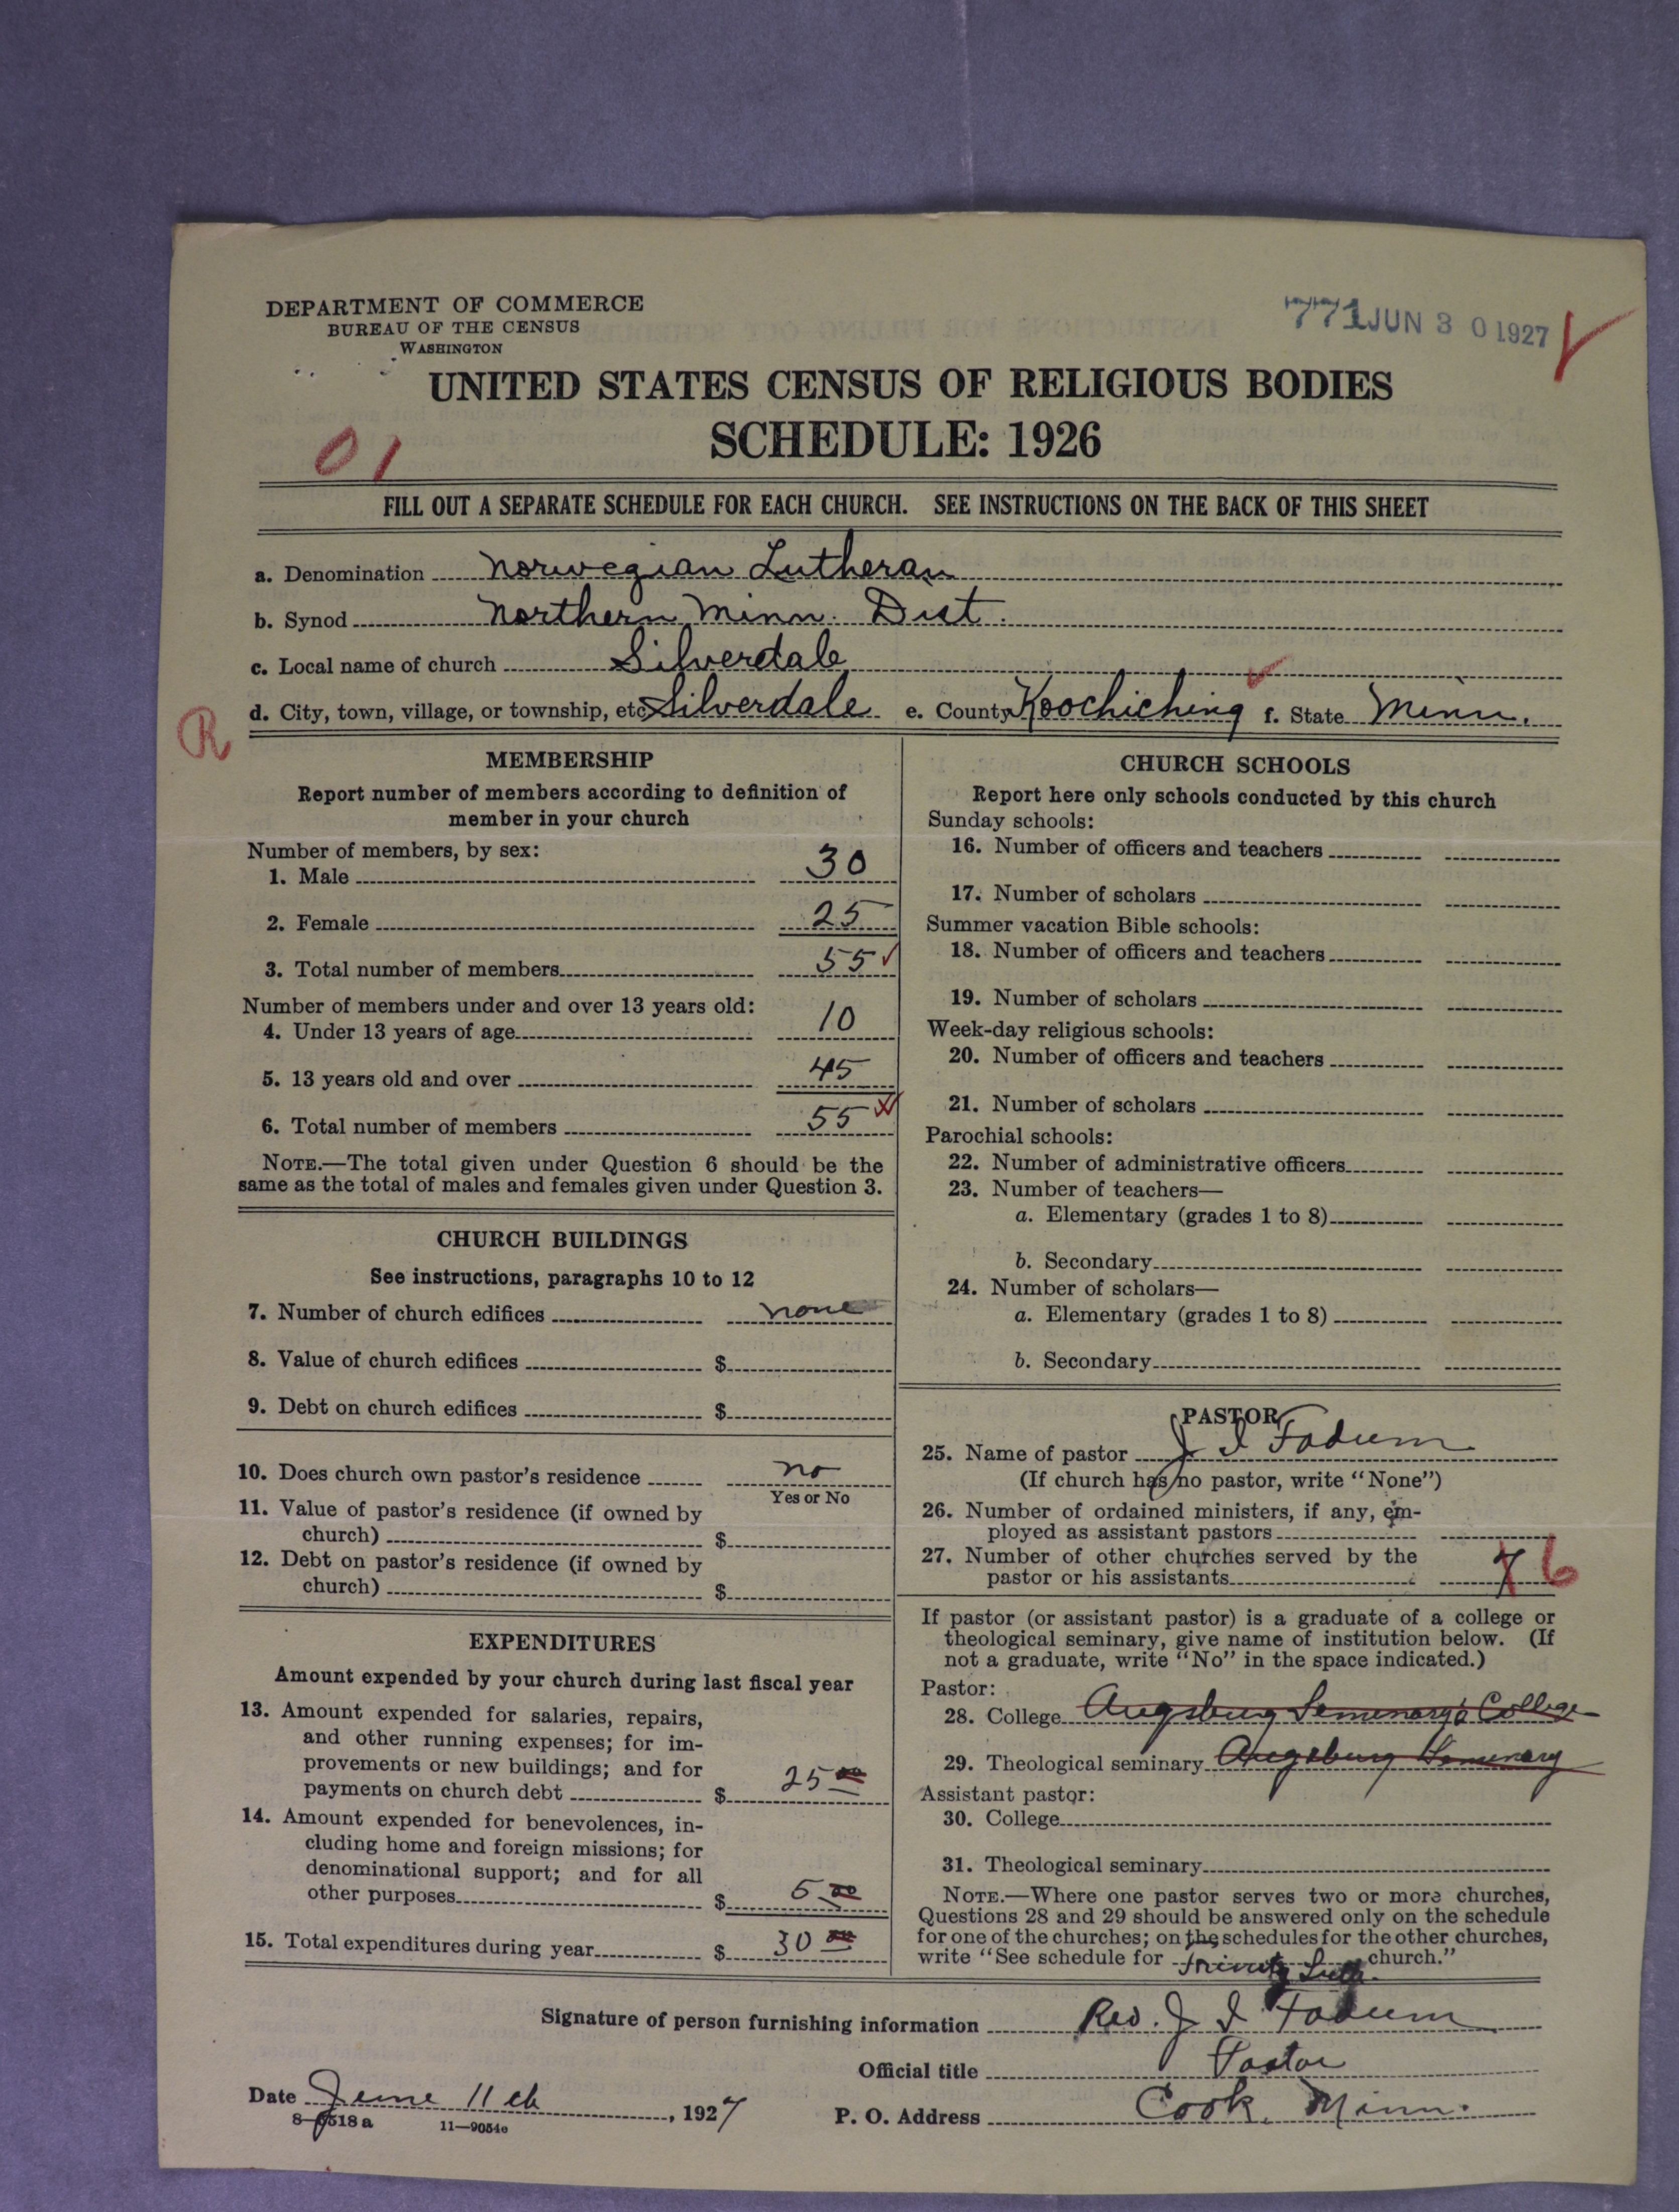 DEPARTMENT OF COMMERCE
BUREAU OF THE CENSUS
WASHINGTON
771 JUN 30 1927
UNITED STATES CENSUS OF RELIGIOUS BODIES
SCHEDULE: 1926
01
FILL OUT A SEPARATE SCHEDULE FOR EACH CHURCH. SEE INSTRUCTIONS ON THE BACK OF THIS SHEET
a. Denomination Norwegian Lutheran
b. Synod Northern Minn. Dist.
c. Local name of church Silverdale
d. City, town, village, or township, etc. Silverdale e. County Koochiching f. State Minn.
R
MEMBERSHIP
Report number of members according to definition of
member in your church
Number of members, by sex:
1. Male 30
2. Female 25
3. Total number of members 55
Number of members under and over 13 years old:
4. Under 13 years of age 10
5. 13 years old and over 45
6. Total number of members 55
NOTE.—The total given under Question 6 should be the
same as the total of males and females given under Question 3.
CHURCH BUILDINGS
See instructions, paragraphs 10 to 12
7. Number of church edifices none
8. Value of church edifices $
9. Debt on church edifices $
10. Does church own pastor's residence no
Yes or No
11. Value of pastor's residence (if owned by
church) $
12. Debt on pastor's residence (if owned by
church) $
EXPENDITURES
Amount expended by your church during last fiscal year
13. Amount expended for salaries, repairs,
and other running expenses; for im-
provements or new buildings; and for
payments on church debt $ 25 00
14. Amount expended for benevolences, in-
cluding home and foreign missions; for
denominational support; and for all
other purposes $ 5 00
15. Total expenditures during year $ 30 00
CHURCH SCHOOLS
Report here only schools conducted by this church
Sunday schools:
16. Number of officers and teachers
17. Number of scholars
Summer vacation Bible schools:
18. Number of officers and teachers
19. Number of scholars
Week-day religious schools:
20. Number of officers and teachers
21. Number of scholars
Parochial schools:
22. Number of administrative officers
23. Number of teachers—
a. Elementary (grades 1 to 8)
b. Secondary
24. Number of scholars—
a. Elementary (grades 1 to 8)
b. Secondary
PASTOR
25. Name of pastor J I Fadum
(If church has no pastor, write "None")
26. Number of ordained ministers, if any, em-
ployed as assistant pastors
27. Number of other churches served by the
pastor or his assistants 7 6
If pastor (or assistant pastor) is a graduate of a college or
theological seminary, give name of institution below. (If
not a graduate, write "No" in the space indicated.)
Pastor:
28. College Augsburg Seminary & College
29. Theological seminary Augsburg Seminary
Assistant pastor:
30. College
31. Theological seminary
NOTE.—Where one pastor serves two or more churches,
Questions 28 and 29 should be answered only on the schedule
for one of the churches; on the schedules for the other churches,
write "See schedule for Trinity Luth. church."
Signature of person furnishing information Rev. J I Fadum
Official title Pastor
Date June 11th, 1927 P. O. Address Cook, Minn.
8—6518 a 11—9054c